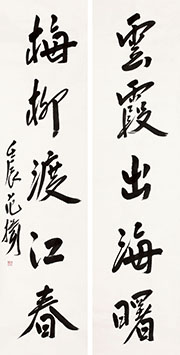 雲霞出海曙
梅柳渡江春
壬辰 范曾